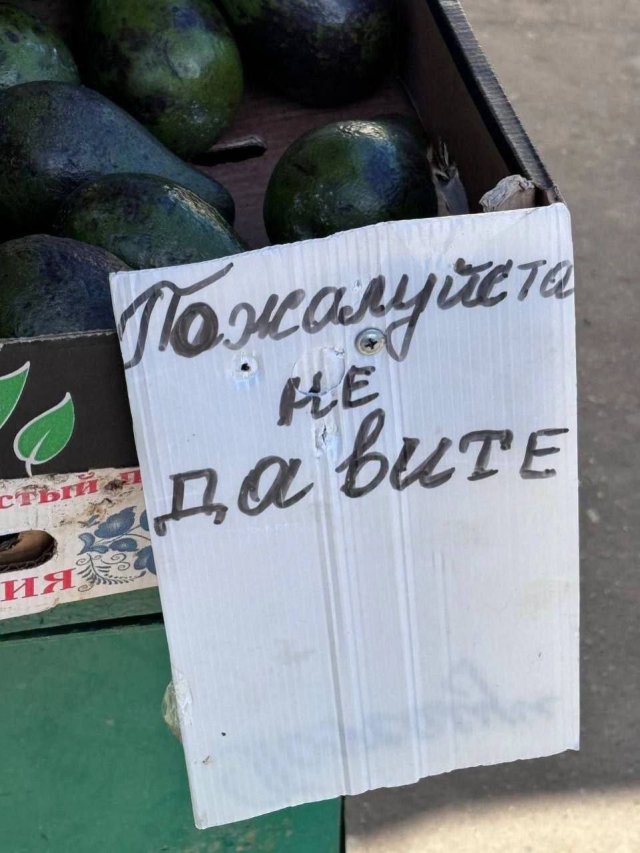 Пожалуйста
не
давите
стый
ия